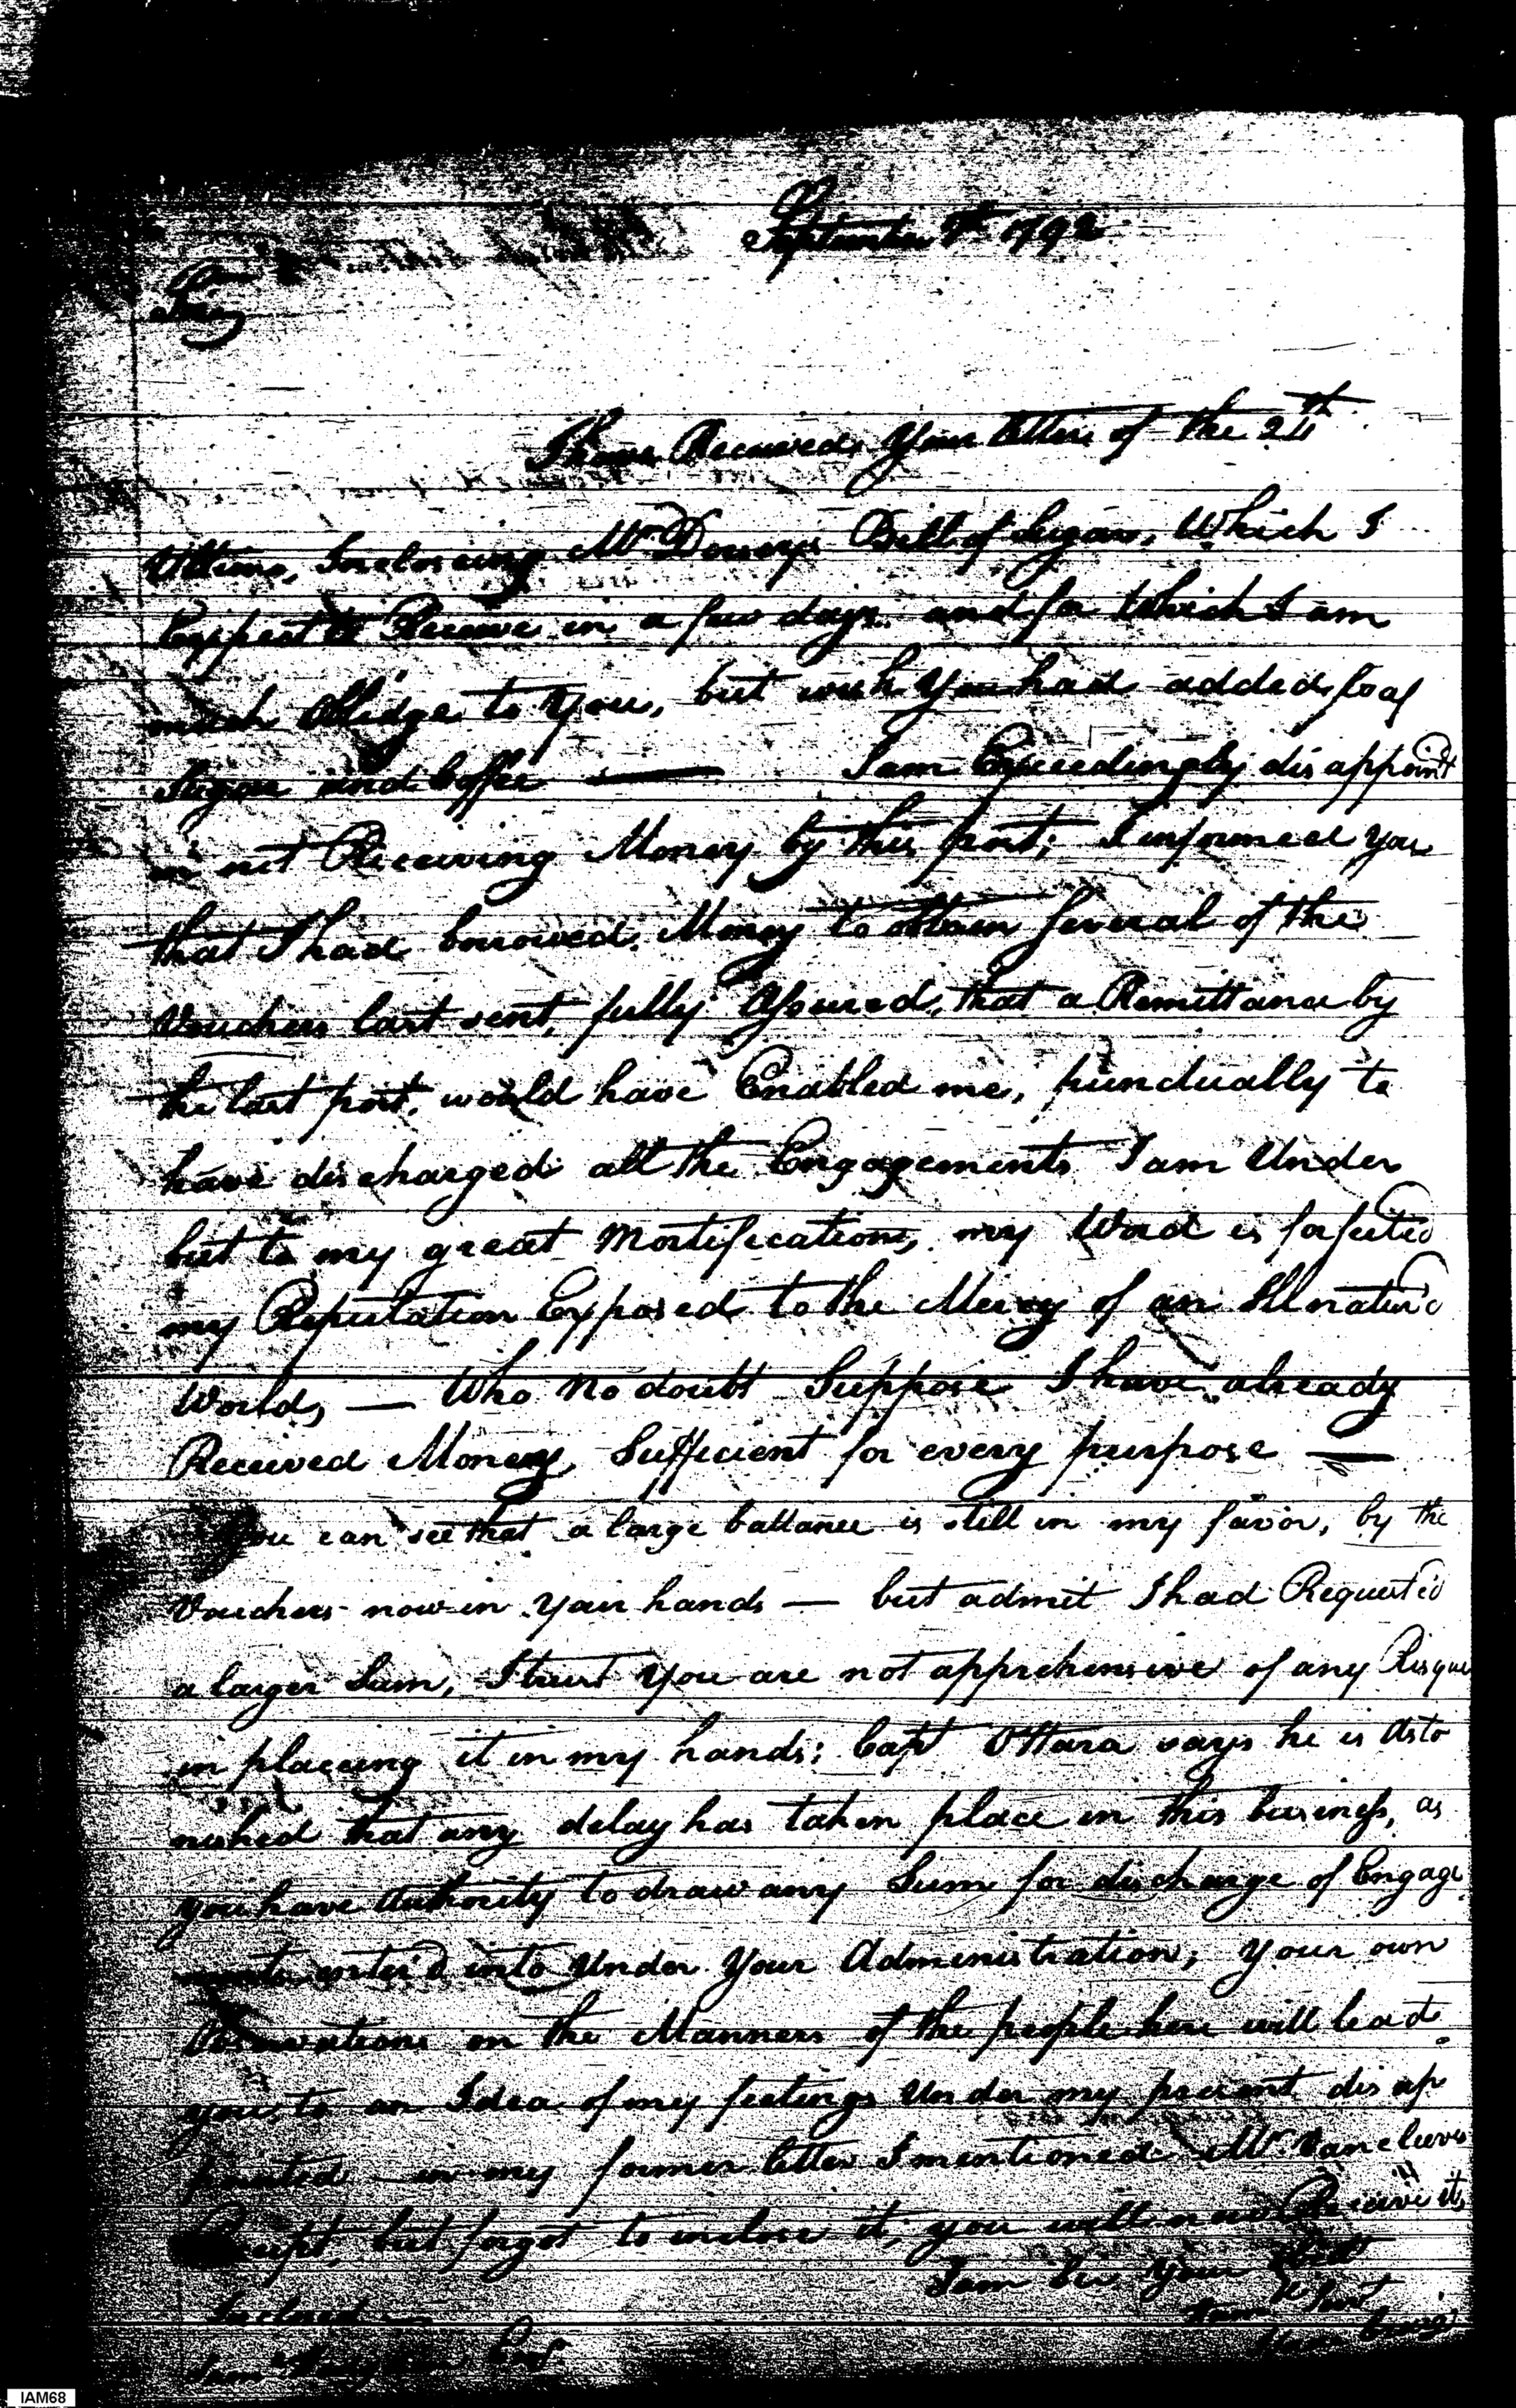 September 7th 1792
I have Received your letter of the 24th
Ultimo, Inclosceing Mr Doseys Bill of Sugar, Which I
Expect to Receive in a few days and for Which I am
much Oblidge to you, but wish you had added loaf
Sugar and Coffee — I am Exceedingly disappoint
in not Receiving Money by this post; I informed you
that I had borrowed Money to obtain Several of the
Vouchers last sent, fully Assured, that a Remittance by
the last post, would have Enabled me, punctually to
have discharged all the Engagements I am Under
but to my great Mortification, my Word is forfeited
my Reputation Exposed to the Mercy of an Illnatur'd
World, — Who no doubt Suppose I have already
Received Money, Sufficient for every purpose —
You can see that a large ballance is still in my favor, by the
Vouchers now in your hands — but admit I had Requested
a larger Sum, I trust you are not apprehensive of any Risque
in placeing it in my hands; Capt OHara says he is Asto
nished that any delay has taken place in this business, as
you have Authority to draw any Sum for discharge of Engage
ments enter'd into Under Your Administration; your own
Observations on the Manners of the people here will lead
you, to an Idea of my feelings Under my present disap
pointed — in my former letter I mentioned Mr Vancleves
Receipt, but forgot to inclose it, you will now Receive it
Inclosed —
I am Sir Your Obt
Humb Servt
Saml Hodgdon Esqr